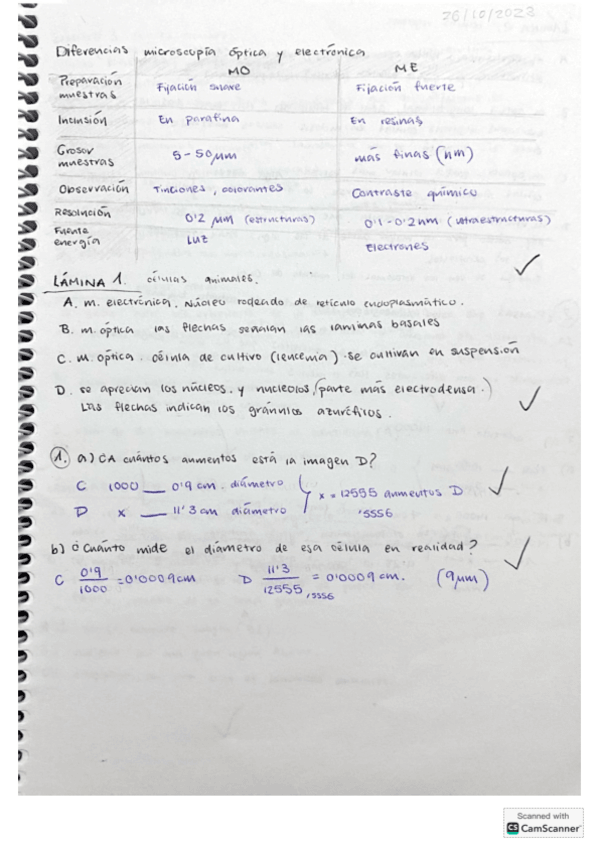 26/10/2023
Diferencias microscopía óptica y electrónica
MO ME
Preparación muestras Fijación suave Fijación fuerte
Inclusión En parafina En resinas
Grosor muestras 5-50 μm más finas (nm)
Observación Tinciones, colorantes Contraste químico
Resolución 0'2 μm (estructuras) 0'1-0'2 nm (ultraestructuras)
Fuente energía Luz Electrones
LÁMINA 1. células animales.
A. m. electrónica. Núcleo rodeado de retículo endoplasmático.
B. m. óptica las flechas señalan las láminas basales
C. m. óptica. célula de cultivo (leucemia). se cultivan en suspensión
D. se aprecian los núcleos y nucleolos, (parte más electrodensa.)
Las flechas indican los gránulos azurófilos.
1. a) ¿A cuántos aumentos está la imagen D?
C 1000 __ 0'9 cm. diámetro
D x __ 11'3 cm diámetro
x = 12555 aumentos D
'5556
b) ¿Cuánto mide el diámetro de esa célula en realidad?
C 0'9/1000 = 0'0009 cm D 11'3/12555,5556 = 0'0009 cm. (9 μm)
Scanned with
CS CamScanner